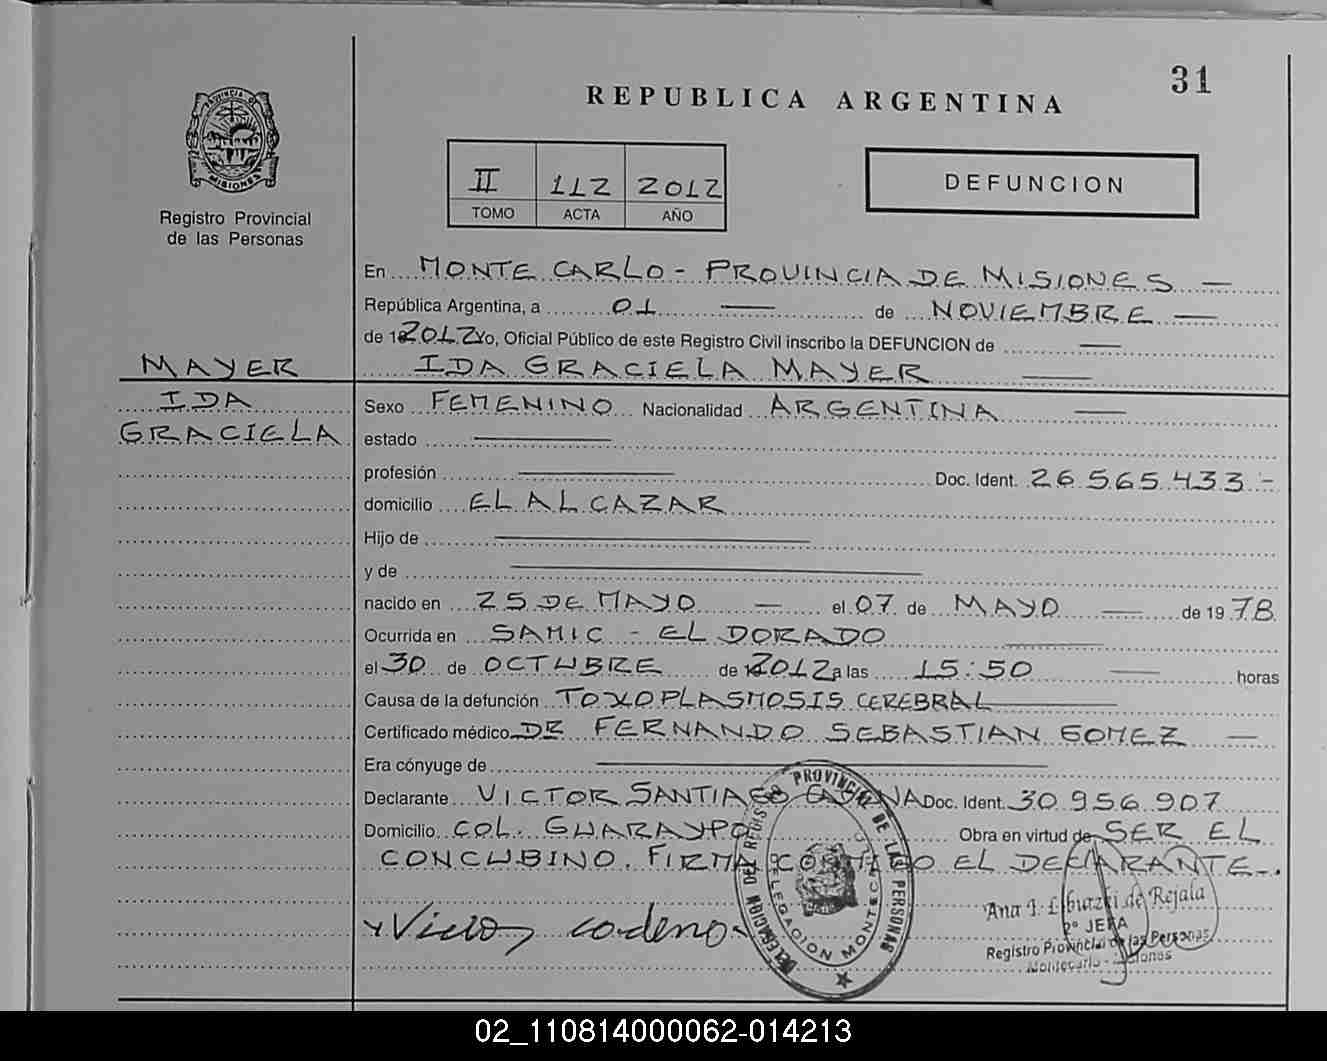 31
REPUBLICA ARGENTINA
PROVINCIA DE MISIONES
Registro Provincial
de las Personas
II 112 2012
TOMO ACTA AÑO
DEFUNCION
En MONTE CARLO - PROVINCIA DE MISIONES —
República Argentina, a 01 — de NOVIEMBRE —
de 2012 Yo, Oficial Público de este Registro Civil inscribo la DEFUNCION de —
MAYER IDA GRACIELA MAYER —
IDA Sexo FEMENINO Nacionalidad ARGENTINA —
GRACIELA estado —
profesión — Doc. Ident. 26.565.433 -
domicilio EL ALCAZAR
Hijo de —
y de —
nacido en 25 DE MAYO — el 07 de MAYO — de 1978
Ocurrida en SAMIC - EL DORADO —
el 30 de OCTUBRE de 2012 a las 15:50 — horas
Causa de la defunción TOXOPLASMOSIS CEREBRAL —
Certificado médico DR FERNANDO SEBASTIAN GOMEZ —
Era cónyuge de —
Declarante VICTOR SANTIAGO Doc. Ident. 30.956.907
Domicilio COL. GUARAYPO Obra en virtud de SER EL
CONCUBINO. FIRMA CONMIGO EL DECLARANTE -.
DELEGACION DEL REGISTRO PROVINCIAL DE LAS PERSONAS
DELEGACION MONTECARLO
Ana I. de Rejala
2º JEFA
Registro Provincial de las Personas
Montecarlo - Misiones
02_110814000062-014213